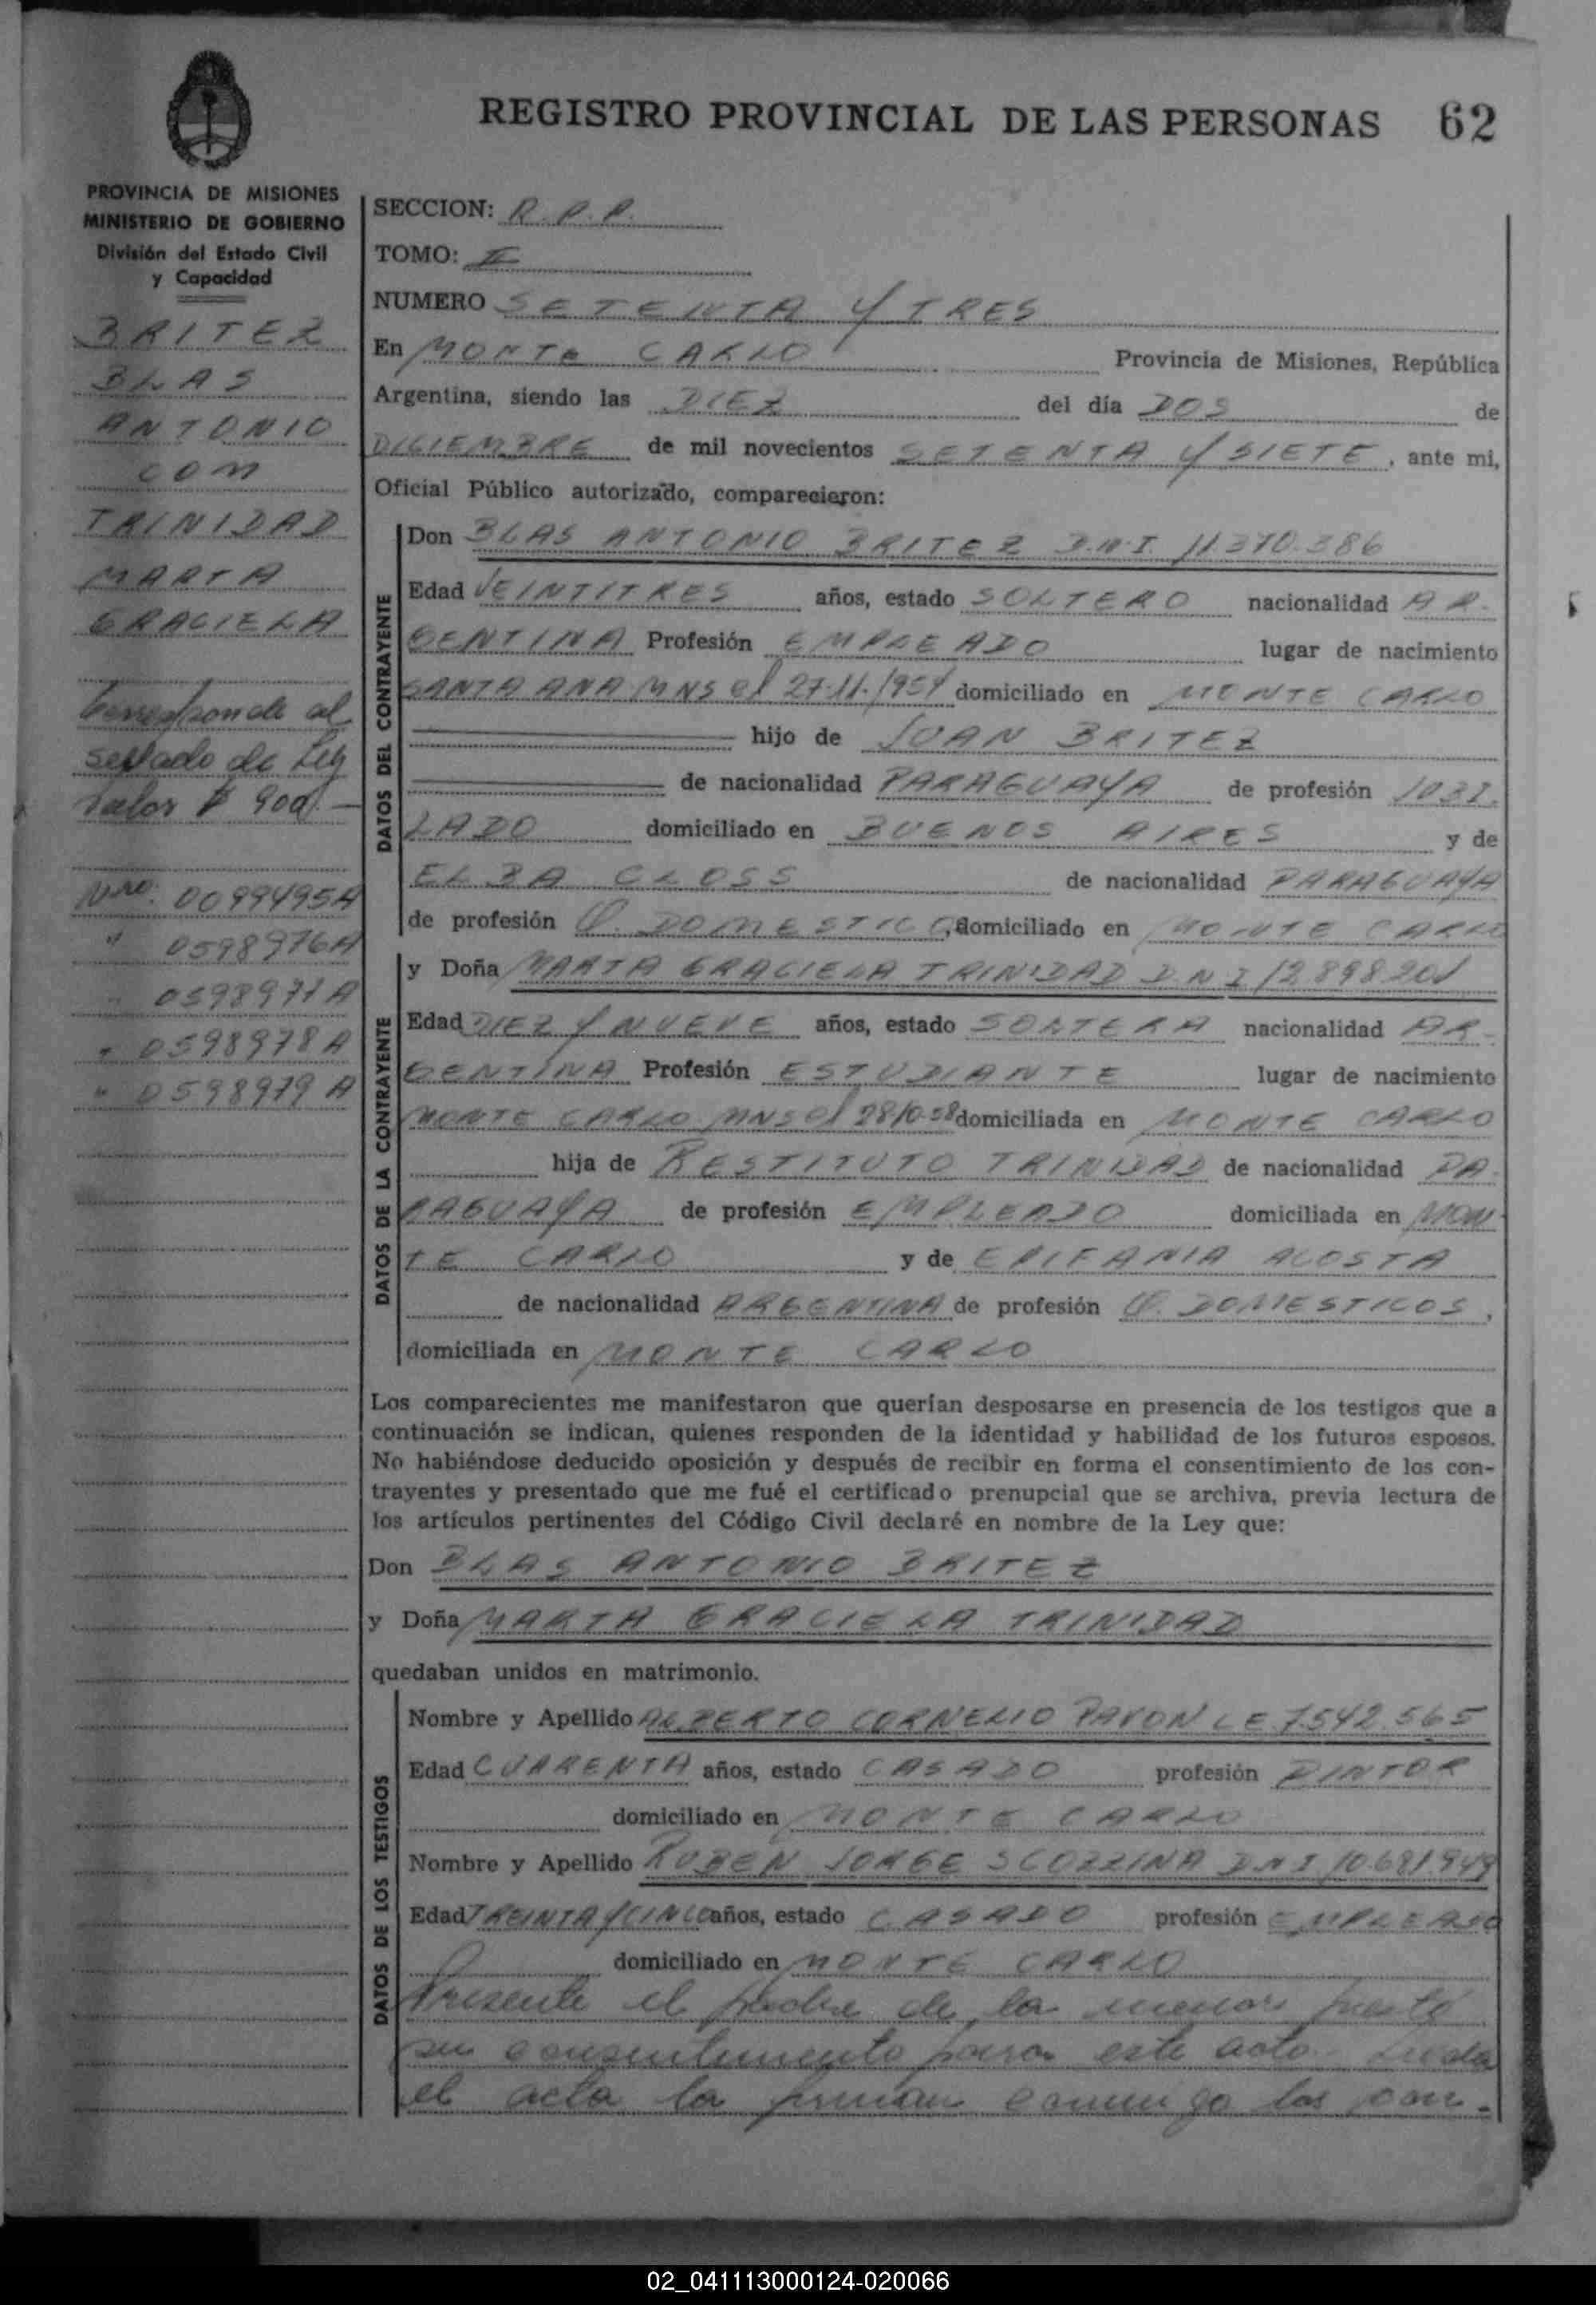 REGISTRO PROVINCIAL DE LAS PERSONAS 62
PROVINCIA DE MISIONES
MINISTERIO DE GOBIERNO
División del Estado Civil
y Capacidad
BRITEZ
BLAS
ANTONIO
CON
TRINIDAD
MARTA
GRACIELA
Corresponde al
sellado de Ley
valor $ 900.-
Nro. 0099495A
" 0598976A
" 0598977A
" 0598978A
" 0598979A
SECCION: R.P.P.
TOMO: II
NUMERO SETENTA Y TRES
En MONTE CARLO Provincia de Misiones, República
Argentina, siendo las DIEZ del día DOS de
DICIEMBRE de mil novecientos SETENTA Y SIETE, ante mi,
Oficial Público autorizado, comparecieron:
DATOS DEL CONTRAYENTE
Don BLAS ANTONIO BRITEZ D.N.I. 11.370.386
Edad VEINTITRES años, estado SOLTERO nacionalidad AR-
GENTINA Profesión EMPLEADO lugar de nacimiento
SANTA ANA MNS el 27.11.1954 domiciliado en MONTE CARLO
hijo de JUAN BRITEZ
de nacionalidad PARAGUAYA de profesión JUBI-
LADO domiciliado en BUENOS AIRES y de
ELBA CLOSS de nacionalidad PARAGUAYA
de profesión Q. DOMESTICO, domiciliado en MONTE CARLO
DATOS DE LA CONTRAYENTE
y Doña MARTA GRACIELA TRINIDAD D.N.I 12.898.201
Edad DIEZ Y NUEVE años, estado SOLTERA nacionalidad AR-
GENTINA Profesión ESTUDIANTE lugar de nacimiento
MONTE CARLO MNS el 28-10-58 domiciliada en MONTE CARLO
hija de RESTITUTO TRINIDAD de nacionalidad PA-
RAGUAYA de profesión EMPLEADO domiciliada en MON-
TE CARLO y de EPIFANIA ACOSTA
de nacionalidad ARGENTINA de profesión Q. DOMESTICOS,
domiciliada en MONTE CARLO
Los comparecientes me manifestaron que querían desposarse en presencia de los testigos que a
continuación se indican, quienes responden de la identidad y habilidad de los futuros esposos.
No habiéndose deducido oposición y después de recibir en forma el consentimiento de los con-
trayentes y presentado que me fué el certificado prenupcial que se archiva, previa lectura de
los artículos pertinentes del Código Civil declaré en nombre de la Ley que:
Don BLAS ANTONIO BRITEZ
y Doña MARTA GRACIELA TRINIDAD
quedaban unidos en matrimonio.
DATOS DE LOS TESTIGOS
Nombre y Apellido ALBERTO CORNELIO PAVON L E 7.542.565
Edad CUARENTA años, estado CASADO profesión PINTOR
domiciliado en MONTE CARLO
Nombre y Apellido RUBEN JORGE SCOZZINA D.N.I 10.681.949
Edad TREINTA Y CINCO años, estado CASADO profesión EMPLEADO
domiciliado en MONTE CARLO
Presente el padre de la menor prestó
su consentimiento para este acto. Leida
el acta la firman conmigo los con-
02_041113000124-020066